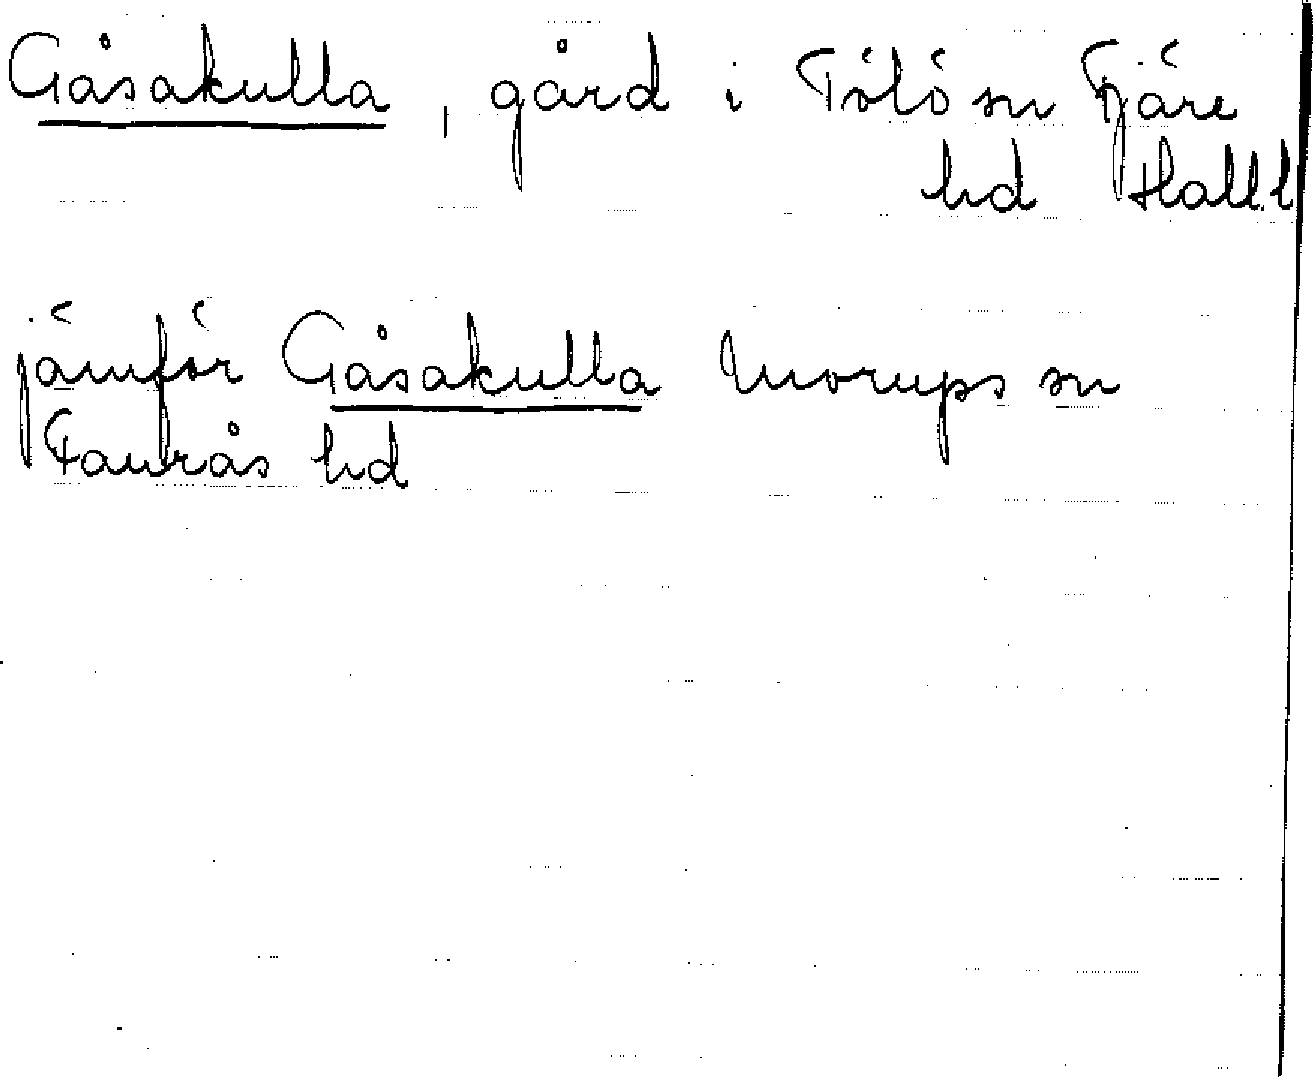 Gåsakulla, gård i Tölö sn Fjäre
hd Halll
jämför Gåsakulla Morups sn
Faurås hd